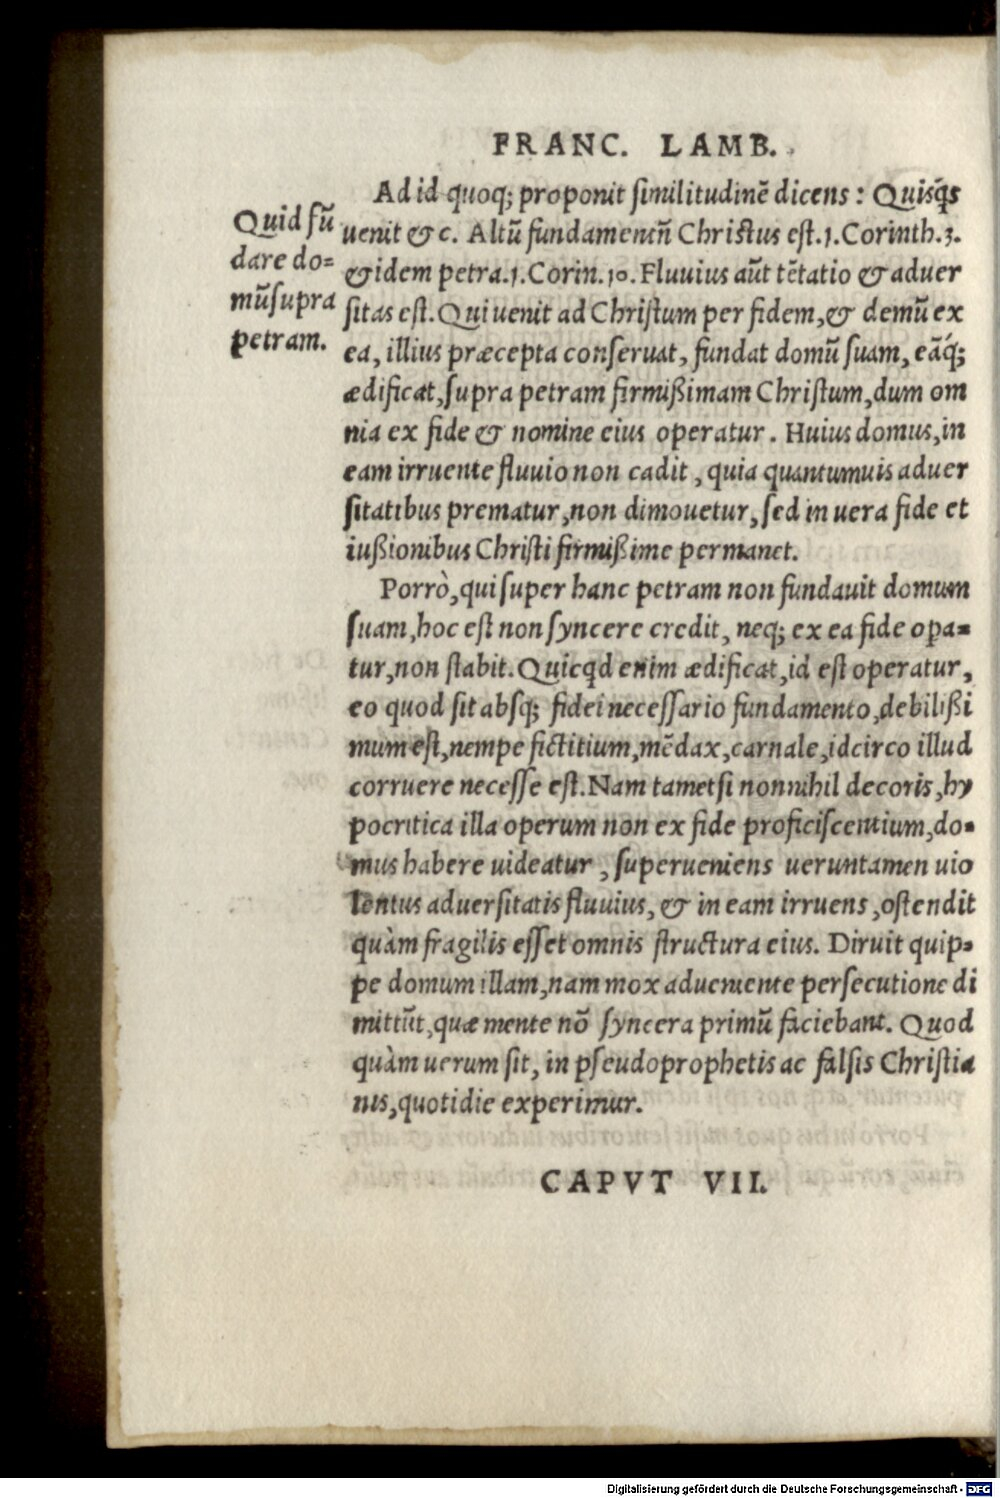 FRANC. LAMB.
Ad id quoq; proponit similitudinẽ dicens : Quisq́s
uenit & c. Altũ fundamentũ Christus est.1.Corinth.3.
& idem petra.1.Corin.10. Fluuius aũt tẽtatio & aduer
sitas est. Qui uenit ad Christum per fidem,& demũ ex
ea, illius præcepta conseruat, fundat domũ suam, eãq́;
ædificat,supra petram firmißimam Christum,dum om
nia ex fide & nomine eius operatur. Huius domus,in
eam irruente fluuio non cadit, quia quantumuis aduer
sitatibus prematur,non dimouetur,sed in uera fide et
iußionibus Christi firmißime permanet.
Quid fũ
dare do=
mũ supra
petram.
Porrò,qui super hanc petram non fundauit domum
suam,hoc est non syncere credit, neq; ex ea fide opa=
tur,non stabit. Quicqd enim ædificat,id est operatur,
eo quod sit absq; fidei necessario fundamento,debilißi
mum est,nempe fictitium,mẽdax,carnale,idcirco illud
corruere necesse est. Nam tametsi nonnihil decoris,hy
pocritica illa operum non ex fide proficiscentium,do=
mus habere uideatur, superueniens ueruntamen uio
lentus aduersitatis fluuius, & in eam irruens,ostendit
quàm fragilis esset omnis structura eius. Diruit quip=
pe domum illam,nam mox adueniente persecutione di
mittũt,quæ mente nõ syncera primũ faciebant. Quod
quàm uerum sit, in pseudoprophetis ac falsis Christia
nis,quotidie experimur.
CAPVT VII.
Digitalisierung gefördert durch die Deutsche Forschungsgemeinschaft - DFG